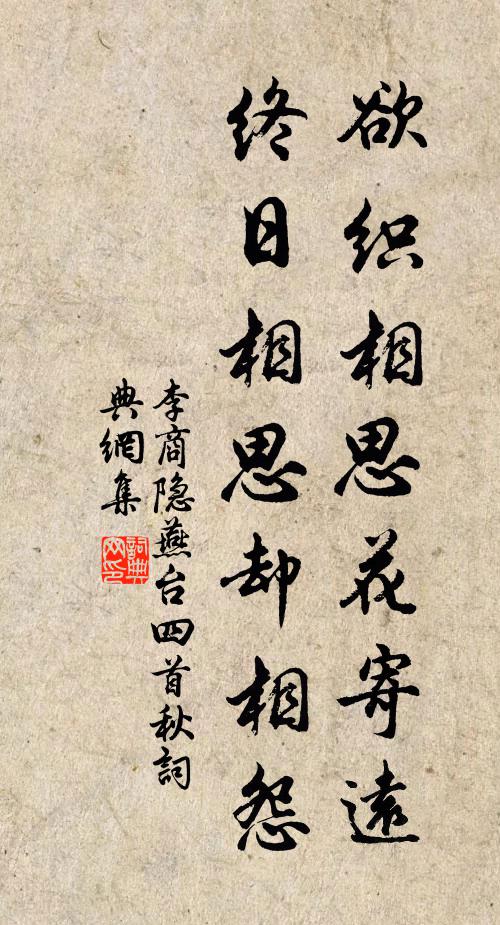 欲织相思花寄遠
终日相思却相怨
李商隐燕台四首秋詞
典網集
詞典
网印